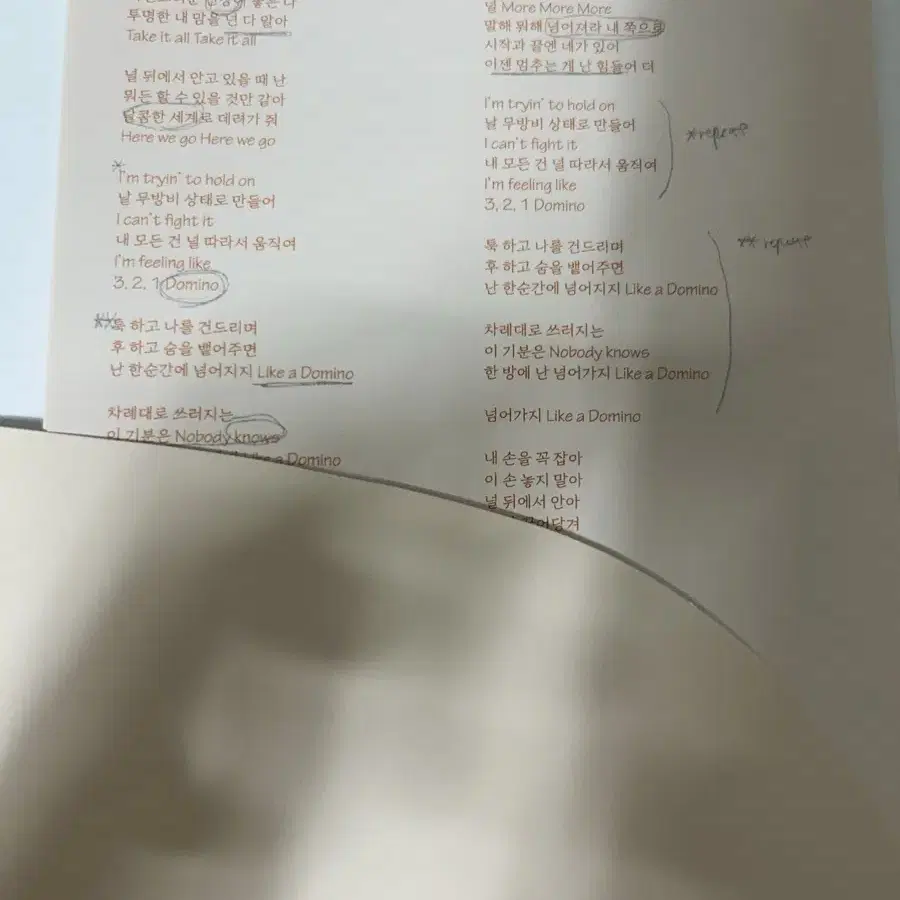 투명한 내 맘을 넌 다 알아
Take it all Take it all
널 뒤에서 안고 있을 때 난
뭐든 할 수 있을 것만 같아
달콤한 세계로 데려가 줘
Here we go Here we go
*
I'm tryin' to hold on
날 무방비 상태로 만들어
I can't fight it
내 모든 건 널 따라서 움직여
I'm feeling like
3, 2, 1 Domino
**툭 하고 나를 건드리며
후 하고 숨을 뱉어주면
난 한순간에 넘어지지 Like a Domino
차례대로 쓰러지는
이 기분은 Nobody knows
Like a Domino
널 More More More
말해 뭐해 넘어져라 내 쪽으로
시작과 끝엔 네가 있어
이젠 멈추는 게 난 힘들어 더
I'm tryin' to hold on
날 무방비 상태로 만들어
I can't fight it
내 모든 건 널 따라서 움직여
I'm feeling like
3, 2, 1 Domino
*repeat
툭 하고 나를 건드리며
후 하고 숨을 뱉어주면
난 한순간에 넘어지지 Like a Domino
차례대로 쓰러지는
이 기분은 Nobody knows
한 방에 난 넘어가지 Like a Domino
** repeat
넘어가지 Like a Domino
내 손을 꼭 잡아
이 손 놓지 말아
널 뒤에서 안아